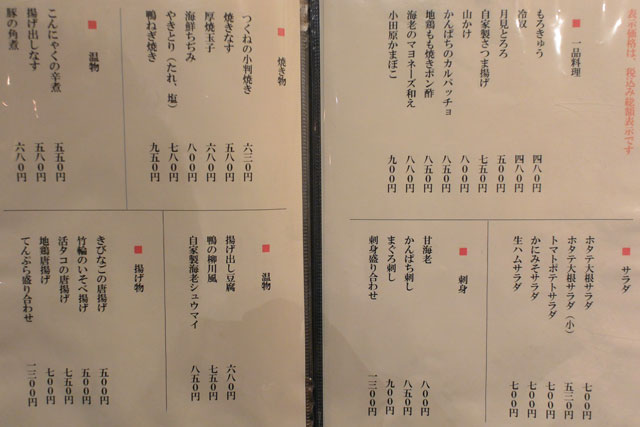 表示価格は、税込み総額表示です
■ 一品料理
もろきゅう 四八〇円
冷奴 四八〇円
月見とろろ 五〇〇円
自家製さつま揚げ 七五〇円
山かけ 八〇〇円
かんぱちのカルパッチョ 八五〇円
地鶏もも焼きポン酢 八五〇円
海老のマヨネーズ和え 八〇〇円
小田原かまぼこ 九〇〇円
■ サラダ
ホタテ大根サラダ 七〇〇円
ホタテ大根サラダ（小） 五三〇円
トマトポテトサラダ 七〇〇円
かにみそサラダ 七〇〇円
生ハムサラダ 七〇〇円
■ 刺身
甘海老 八〇〇円
かんぱち刺し 八五〇円
まぐろ刺し 九〇〇円
刺身盛り合わせ 一三〇〇円
■ 焼き物
つくねの小判焼き 六三〇円
焼きなす 五八〇円
厚焼玉子 六八〇円
海鮮ちぢみ 八〇〇円
やきとり（たれ、塩） 七八〇円
鴨ねぎ焼き 九五〇円
■ 温物
こんにゃくの辛煮 五五〇円
揚げ出しなす 五八〇円
豚の角煮 六八〇円
■ 温物
揚げ出し豆腐 六八〇円
鴨の柳川風 七五〇円
自家製海老シュウマイ 八五〇円
■ 揚げ物
きびなごの唐揚げ 五〇〇円
竹輪のいそべ揚げ 五〇〇円
活タコの唐揚げ 七五〇円
地鶏唐揚げ 七〇〇円
てんぷら盛り合わせ 一三〇〇円